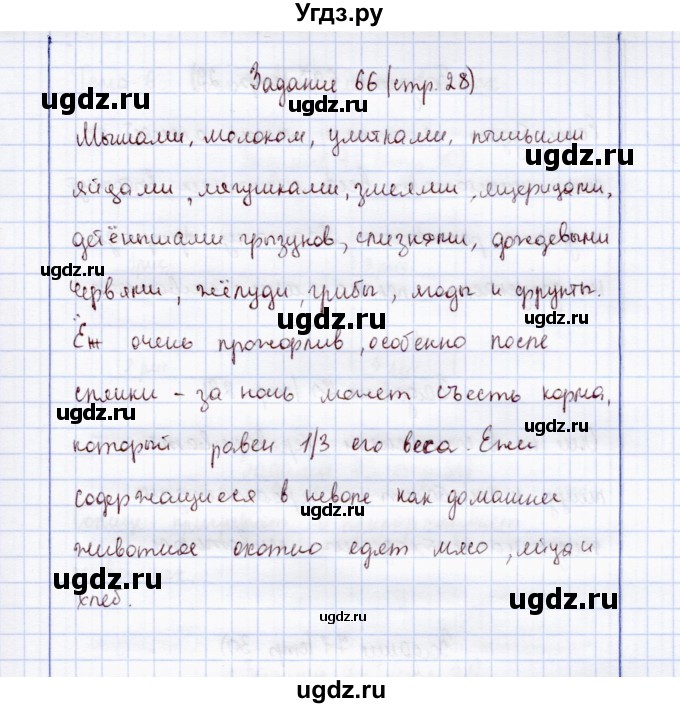 Угдз.ру
Задание 66 (стр. 28)
ugdz.ru ugdz.ru
Мышами, молоком, улитками, птичьими
ugdz.ru
яйцами, лягушками, змеями, ящерицами,
детёнышами грызунов, слизнями, дождевыми
ugdz.ru ugdz.ru
червями, жёлуди, грибы, ягоды и фрукты.
ugdz.ru
Ёж очень прожорлив, особенно после
спячки - за ночь может съесть корма,
ugdz.ru ugdz.ru
который равен 1/3 его веса. Ежи
содержащиеся в неволе как домашнее
ugdz.ru
животное охотно едят мясо, яйца и
ugdz.ru ugdz.ru
хлеб.
ugdz.ru
ugdz.ru